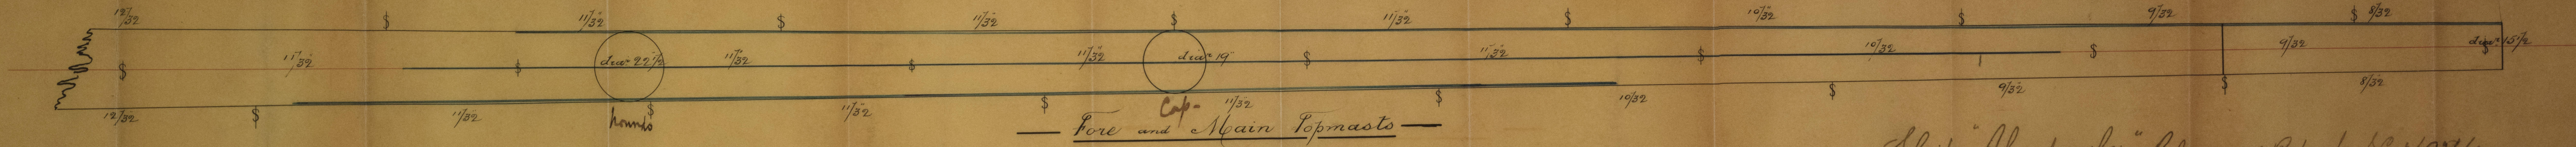 12/32 $ 11/32 $ 11/32 $ 11/32 $ 10/32 $ 9/32 $ 8/32
$ 11/32 $ diar 22 1/2 11/32 $ 11/32 diar 19 $ 11/32 $ 10/32 $ 9/32 $ diar 15 1/2
12/32 $ 11/32 $ 11/32 $ 11/32 $ 10/32 $ 9/32 $ 8/32
hounds Cap-
Fore and Main Topmasts